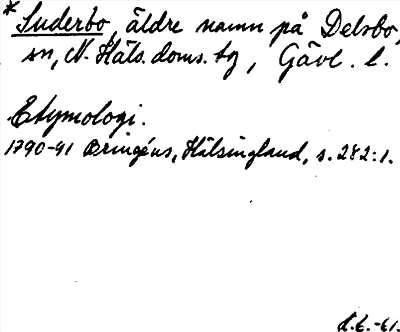 * Suderbo, äldre namn på Delsbo,
sn, N. Häls. doms. tg, Gävl. l.
Etymologi.
1790-91 Bringéus, Hälsingland, s. 282:1.
d. 6. -61.